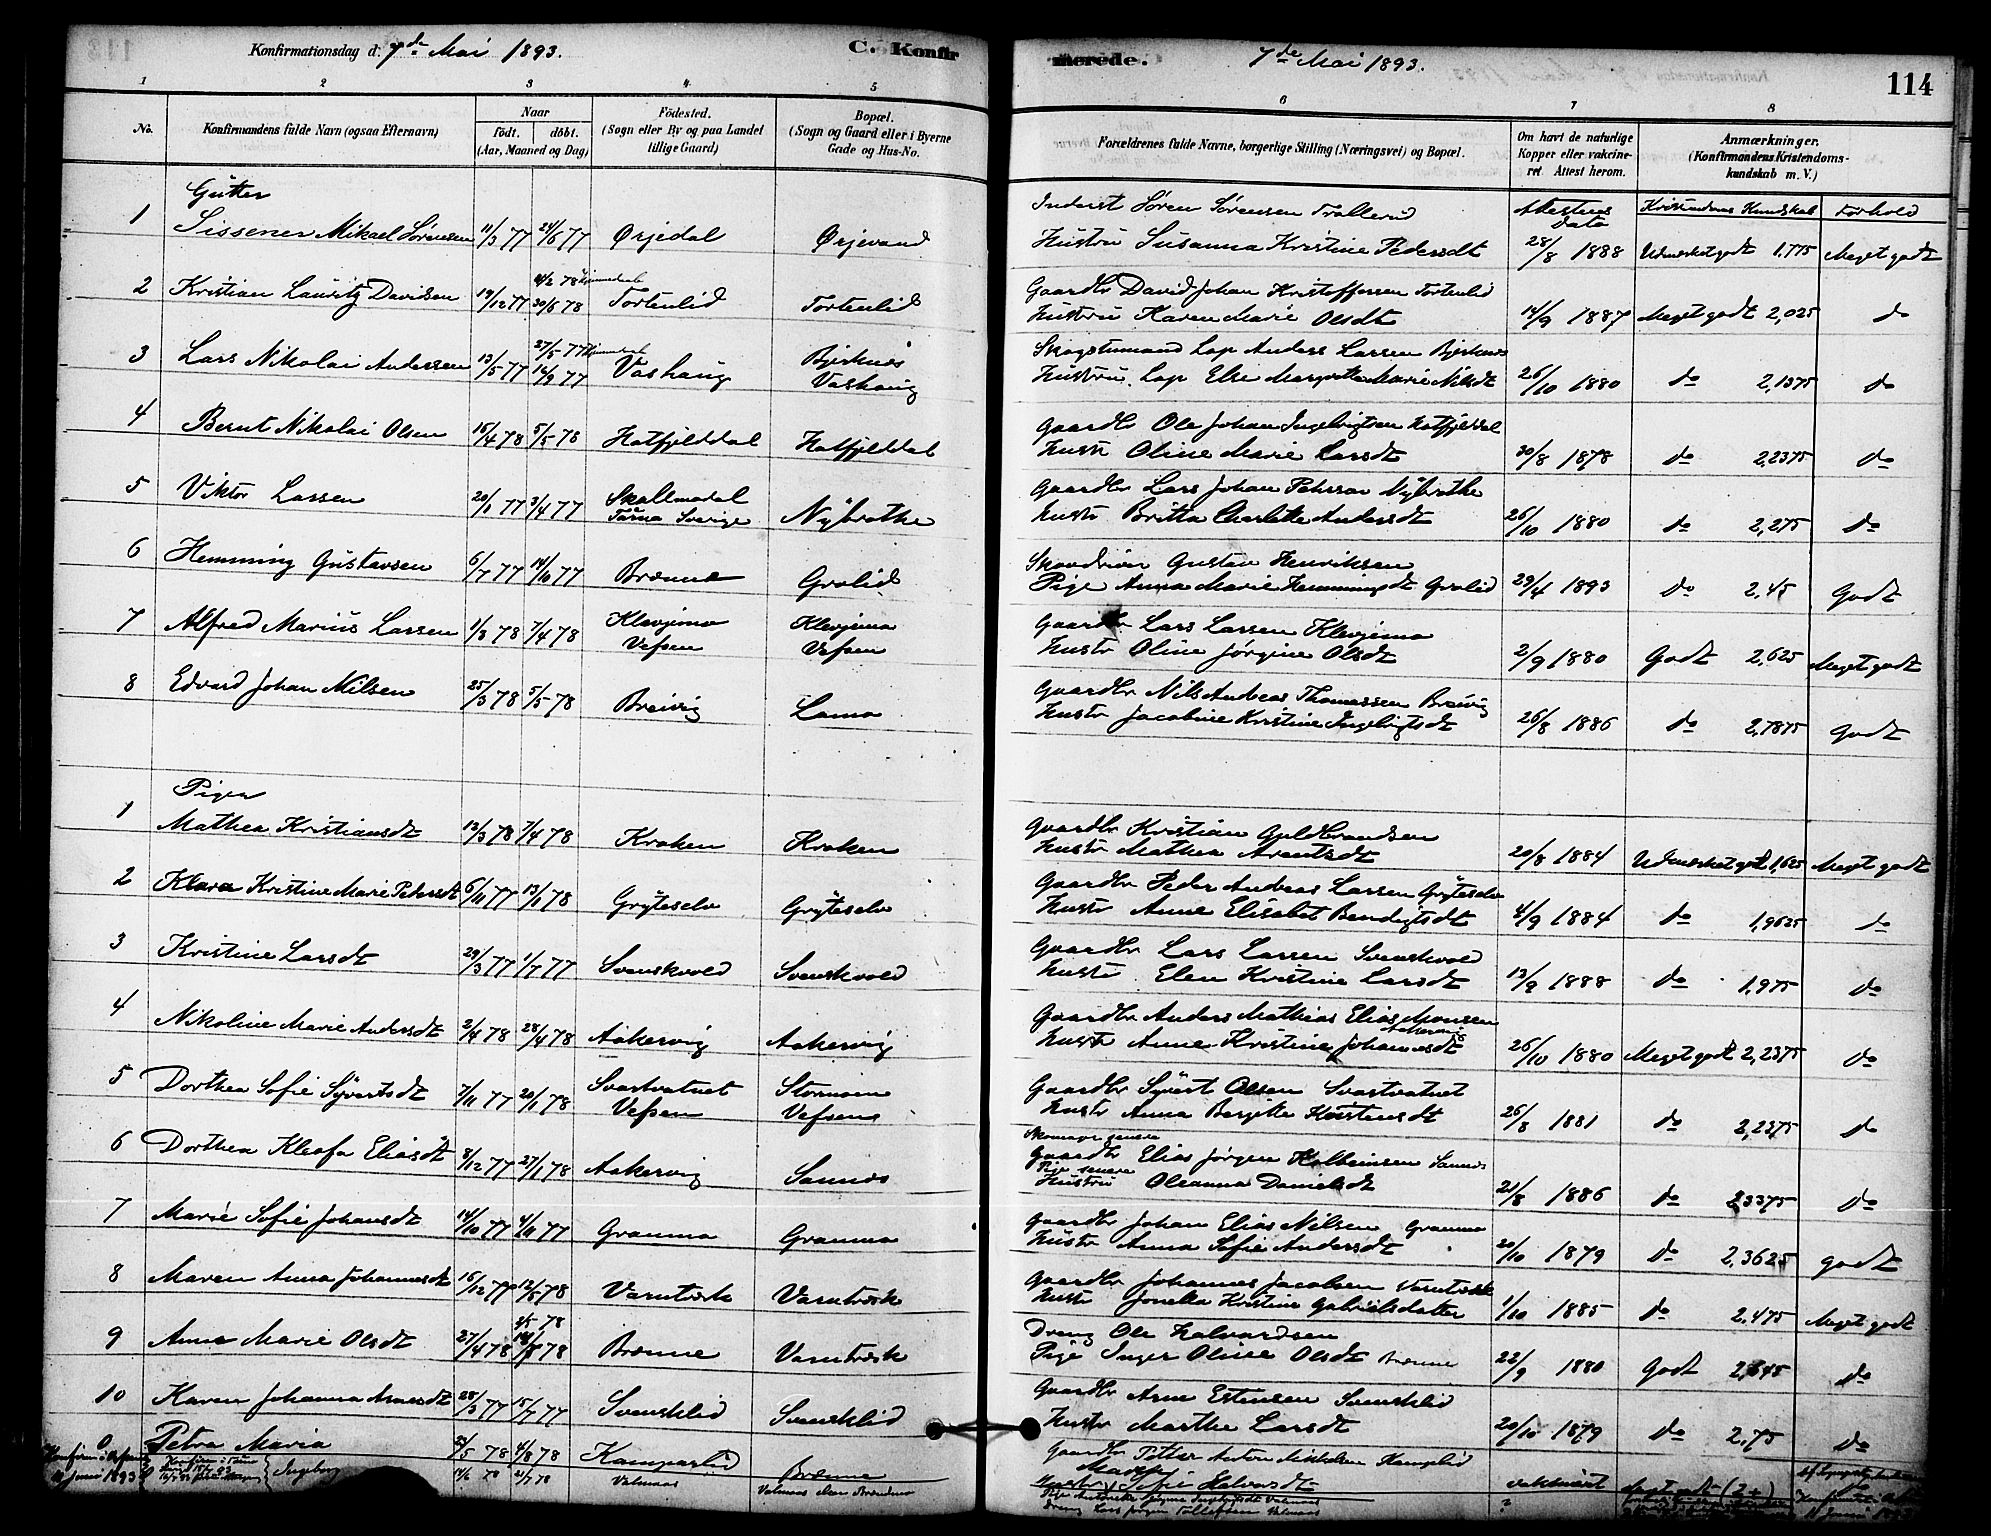 Konfirmationsdag d. 7de Mai 1893. C. Konfir
merede. 7de Mai 1893. 114
1 2 3 4 5
6 7 8
No. Konfirmandens fulde Navn (ogsaa Efternavn) Naar födt. döbt. (Aar, Maaned og Dag) Födested. (Sogn eller By og paa Landet tillige Gaard) Bopæl. (Sogn og Gaard eller i Byerne Gade og Hus-No.
Forældrenes fulde Navne, borgerlige Stilling (Næringsvei) og Bopæl. Om havt de naturlige Kopper eller vakcineret Attest herom. Anmærkninger. (Konfirmandens Kristendomskundskab m. V.)
Gutter
Attestens Dato Kristendoms Kundskab Forhold
1 Sissener Mikael Sørensen 11/3 77 24/6 77 Ørjedal Ørjevand
Inderst Søren Sørensen Trallerud
Hustru Susanna Kristine Pedersdt 28/8 1888 Udmærket godt 1,775 Meget godt
2 Kristian Lauritz Davidsen 19/12 77 30/6 78 Tortenlid Tortenlid
Gaardbr David Johan Kristoffersen Tortenlid
Hustru Karen Marie Olsdt 14/9 1887 Meget godt 2,025 do
3 Lars Nikolai Andersen 13/5 77 27/5 77 16/9 77 Vashaug Bjerknes Vashaug
Skogstumand Lap Anders Larsen Bjerknes
Hustru Lap Else Margrethe Marie Nilsdt 26/10 1880 do 2,1375 do
4 Bernt Nikolai Olsen 15/4 78 5/5 78 Hatfjelddal Hatfjelddal
Gaardbr Ole Johan Ingebrigtsen Hatfjelddal
Hustr Oline Marie Larsdt 30/8 1878 do 2,2375 do
5 Viktor Larsen 20/1 77 3/4 77 Skallmodal Tärna Sverige Nybrotke
Gaardbr Lars Johan Pehrson Nybrotke
Hustr Britta Charlotte Andersdt 26/10 1880 do 2,275 do
6 Hemming Gustavsen 6/7 77 14/10 77 Brænne Grølid
Gustav Henriksen
Pige Anna Marie Hemmingsdt Grølid 29/4 1893 do 2,45 Godt
7 Alfred Marius Larsen 1/3 78 7/4 78 Klevjemo Vefsen Klevjemo Vefsen
Gaardbr Lars Larsen Klevjemo
Hustr Oline Jørgine Olsdt 2/9 1880 Godt 2,625 Meget godt
8 Edvard Johan Nilsen 25/3 78 5/5 78 Breivig Lamo
Gaardbr Nils Andreas Thomassen Breivig
Hustr Jacobine Kristine Ingebrigtsdt 26/8 1886 do 2,7875 Godt
Piger
1 Mathea Kristiansdt 13/3 78 7/4 78 Kroken Kroken
Gaardbr Kristian Guldbrandsen
Hustr Mathea Arentsdt 20/8 1884 Udmærket godt 1,625 Meget godt
2 Klara Kristine Marie Pedersdt 6/11 77 13/1 78 Gryteselv Gryteselv
Gaardbr Peder Andreas Larsen Gryteselv
Hustr Anne Elisabet Bendigtsdt 4/9 1884 do 1,9625 do
3 Kristine Larsdt 29/3 77 1/7 77 Svenskvold Svenskvold
Gaardbr Lars Larsen Svenskvold
Hustr Elen Kristine Larsdt 13/9 1888 do 1,975 do
4 Nikoline Marie Andersdt 2/4 78 28/4 78 Aakervig Aakervig
Gaardbr Anders Mathias Elias Monsen Aakervig
Hustr Anne Kristine Johannesdt 26/10 1880 Meget godt 2,2375 do
5 Dorthea Sofie Syvertsdt 7/11 77 20/1 78 Svartvatnet Vefsen Stormoen Vefsen
Gaardbr Syvert Olsen Svartvatnet
Hustr Anna Bergitte Karstensdt 26/8 1881 do 2,2375 do
6 Dorthea Kleofa Eliasdt 8/12 77 27/1 78 Aakervig Sannes
Gaardbr Elias Jørgen Kolbeinsen Sannes
Hustru Oleanna Danielsdt 21/8 1886 do 2,3375 do
7 Marie Sofie Johansdt 14/10 77 4/11 77 Grannmo Grannmo
Gaardbr Johan Elias Nilsen Grannmo
Hustr Anna Sofie Andersdt 20/10 1879 do 2,3625 Godt
8 Maren Anna Johannesdt 16/12 77 12/5 78 Varntræsk Varntræsk
Gaardbr Johannes Jacobsen Varntræsk
Hustr Jonetta Kristine Gabrielsdatter 1/10 1885 do 2,475 Meget godt
9 Anna Marie Olsdt 27/4 78 Brænne Varntræsk
Dreng Ole Halvardsen
Pige Inger Oline Olsdt Brænne 22/9 1880 Godt 2,645 do
10 Karen Johanna Arnesdt 28/3 77 15/7 77 Svensklid Svensklid
Gaardbr Arne Estensen Svensklid
Hustr Marthe Larsdt 20/10 1879 do 2,75 do
Petra Maria 4/8 78 Kampeslid Brænne
Gaardbr Petter Anton Mikkelsen Kampslid
Sofie Halvorsdt vaktineret Meget godt (2+)
11 Juni 1893 Ingeborg
Valmoas